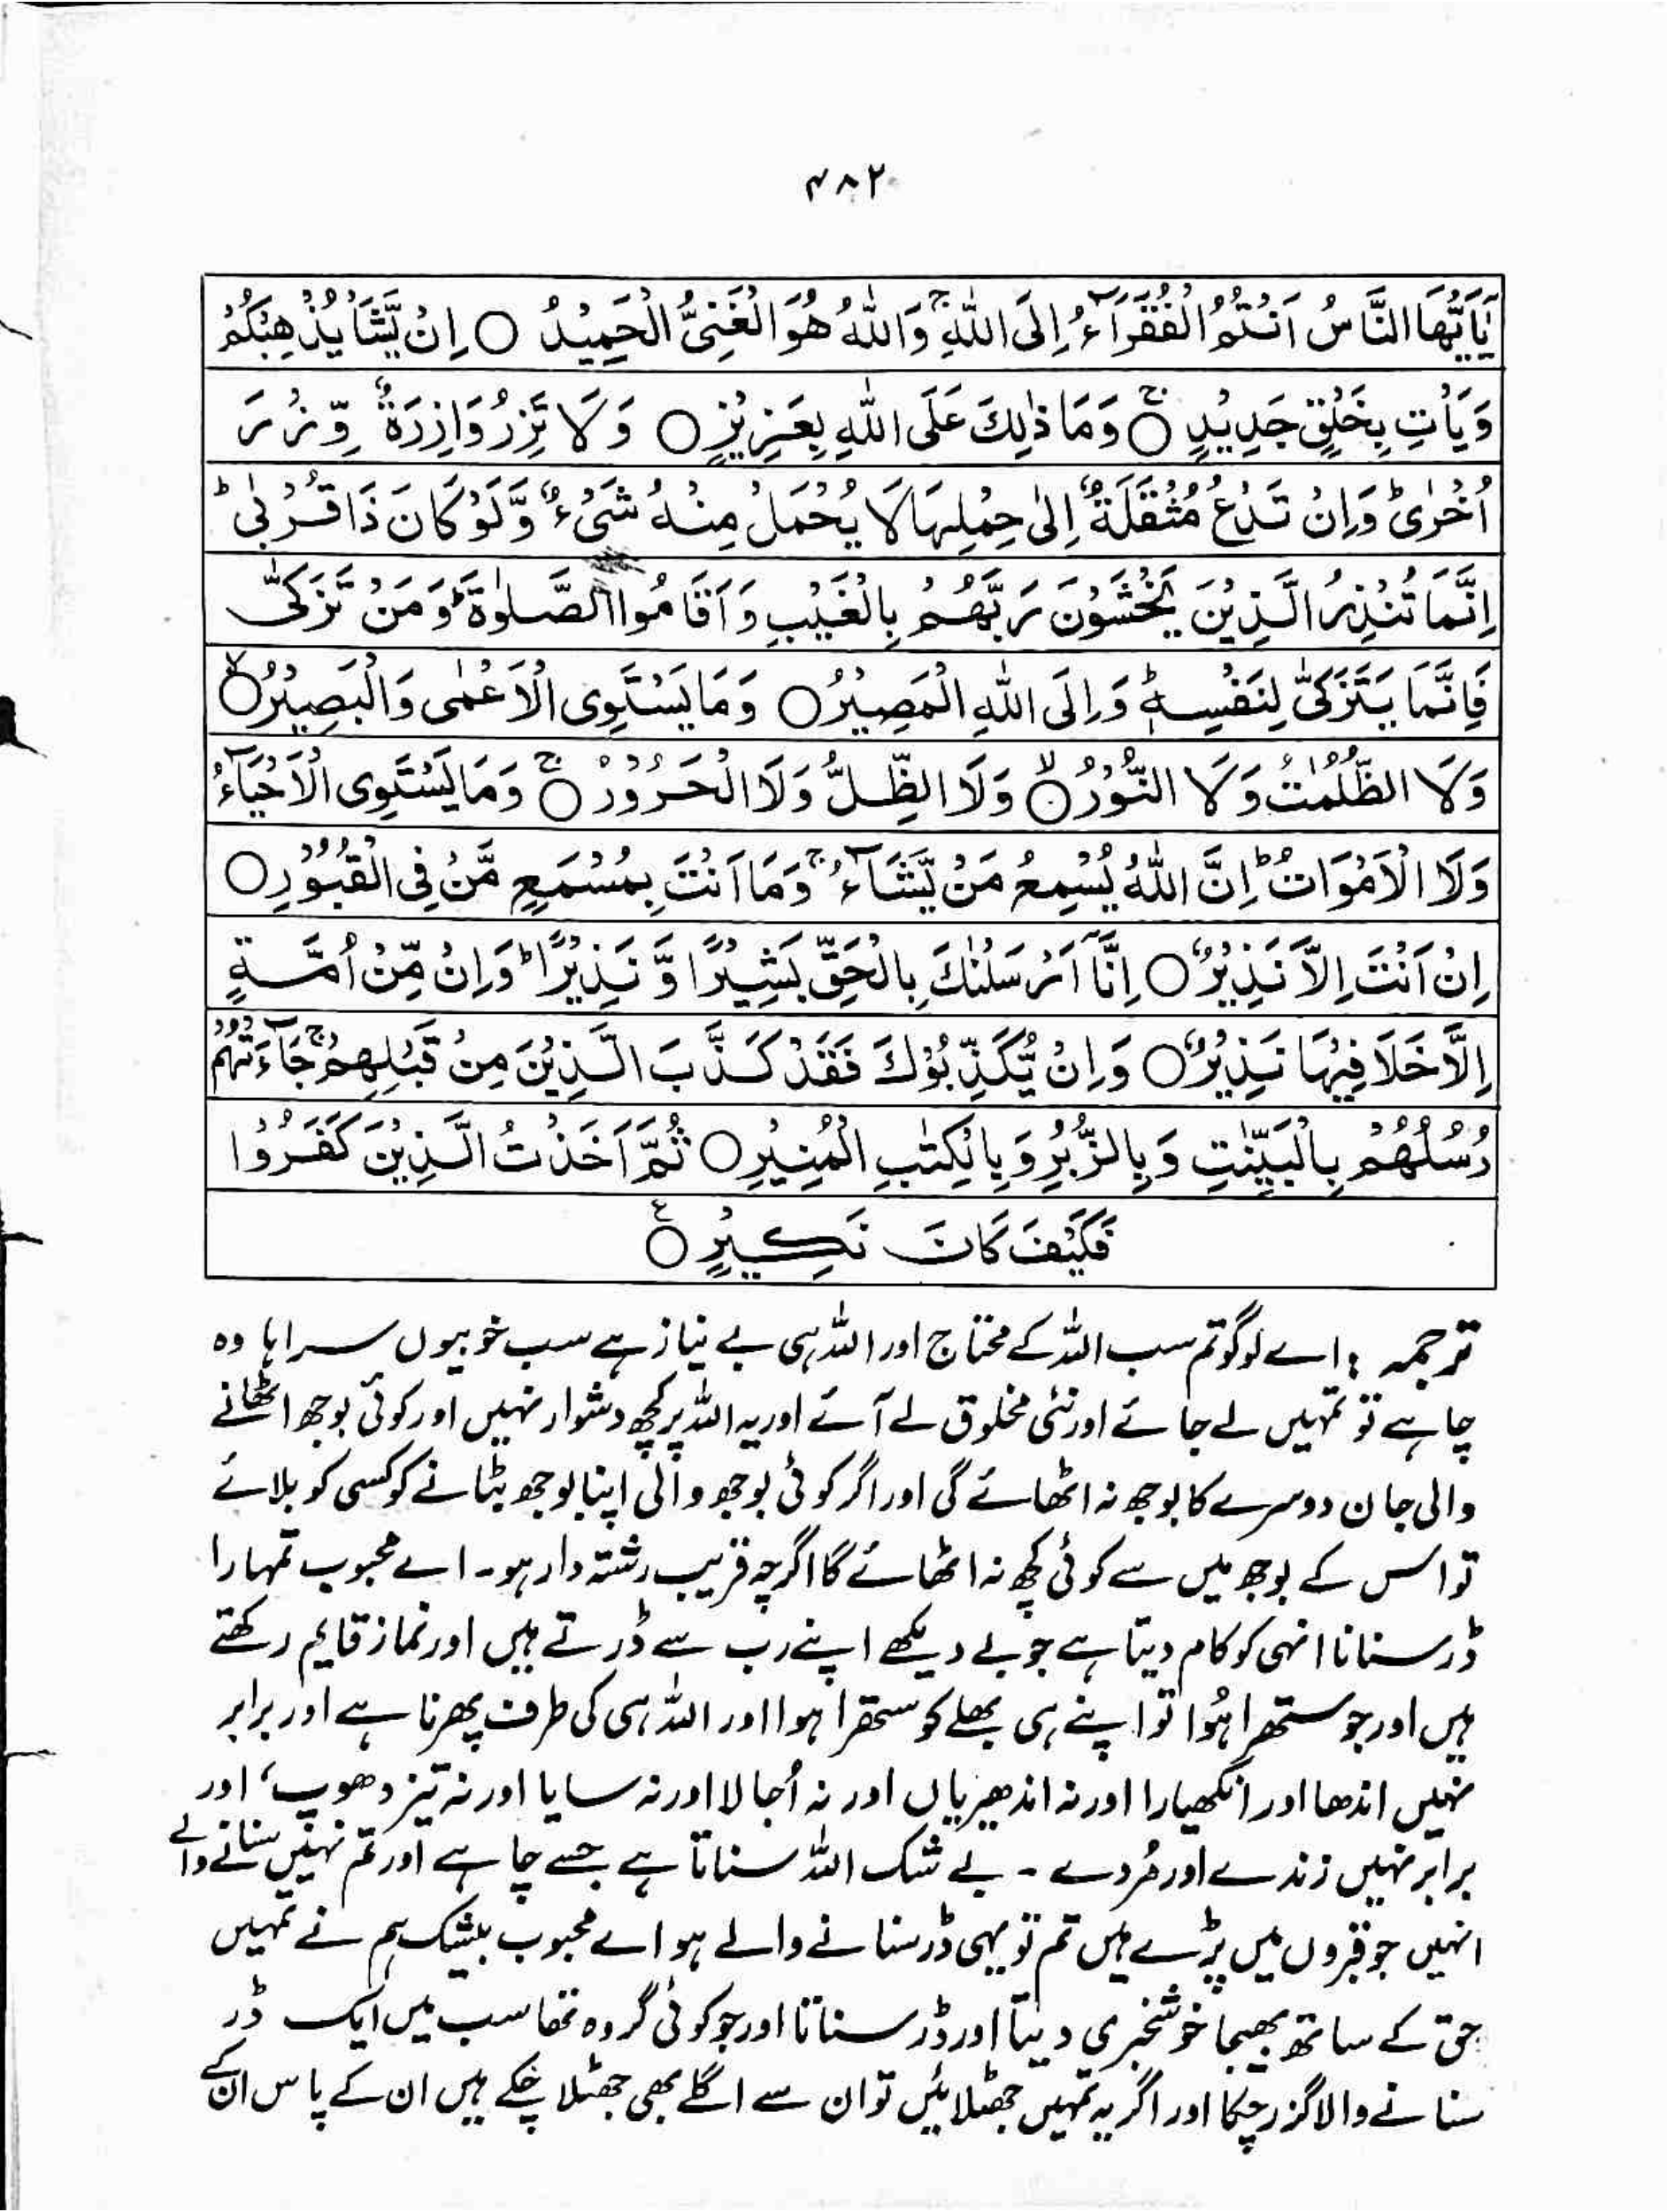 ۴۸۲
يٰۤاَيُّهَا النَّاسُ اَنْتُمُ الْفُقَرَآءُ اِلَى اللّٰهِ ۚ وَاللّٰهُ هُوَ الْغَنِىُّ الْحَمِيْدُ ○ اِنْ يَّشَاْ يُذْهِبْكُمْ
وَيَاْتِ بِخَلْقٍ جَدِيْدٍ ○ۚ وَمَا ذٰلِكَ عَلَى اللّٰهِ بِعَزِيْزٍ ○ وَلَا تَزِرُ وَازِرَةٌ وِّزْرَ
اُخْرٰى ؕ وَاِنْ تَدْعُ مُثْقَلَةٌ اِلٰى حِمْلِهَا لَا يُحْمَلْ مِنْهُ شَىْءٌ وَّلَوْ كَانَ ذَا قُرْبٰى ؕ
اِنَّمَا تُنْذِرُ الَّذِيْنَ يَخْشَوْنَ رَبَّهُمْ بِالْغَيْبِ وَاَقَامُوا الصَّلٰوةَ ؕ وَمَنْ تَزَكّٰى
فَاِنَّمَا يَتَزَكّٰى لِنَفْسِهٖ ؕ وَاِلَى اللّٰهِ الْمَصِيْرُ ○ وَمَا يَسْتَوِى الْاَعْمٰى وَالْبَصِيْرُ ○ۙ
وَلَا الظُّلُمٰتُ وَلَا النُّوْرُ ○ۙ وَلَا الظِّلُّ وَلَا الْحَرُوْرُ ○ۚ وَمَا يَسْتَوِى الْاَحْيَآءُ
وَلَا الْاَمْوَاتُ ؕ اِنَّ اللّٰهَ يُسْمِعُ مَنْ يَّشَآءُ ۚ وَمَا اَنْتَ بِمُسْمِعٍ مَّنْ فِى الْقُبُوْرِ ○
اِنْ اَنْتَ اِلَّا نَذِيْرٌ ○ اِنَّاۤ اَرْسَلْنٰكَ بِالْحَقِّ بَشِيْرًا وَّ نَذِيْرًا ؕ وَاِنْ مِّنْ اُمَّةٍ
اِلَّا خَلَا فِيْهَا نَذِيْرٌ ○ وَاِنْ يُّكَذِّبُوْكَ فَقَدْ كَذَّبَ الَّذِيْنَ مِنْ قَبْلِهِمْ ۚ جَآءَتْهُمْ
رُسُلُهُمْ بِالْبَيِّنٰتِ وَبِالزُّبُرِ وَبِالْكِتٰبِ الْمُنِيْرِ ○ ثُمَّ اَخَذْتُ الَّذِيْنَ كَفَرُوْا
فَكَيْفَ كَانَ نَكِيْرِ ○
ترجمہ : اے لوگو تم سب اللہ کے محتاج اور اللہ ہی بے نیاز ہے سب خوبیوں سراہا وہ
چاہے تو تمہیں لے جائے اور نئی مخلوق لے آئے اور یہ اللہ پر کچھ دشوار نہیں اور کوئی بوجھ اٹھانے
والی جان دوسرے کا بوجھ نہ اٹھائے گی اور اگر کوئی بوجھ والی اپنا بوجھ بٹانے کو کسی کو بلائے
تو اس کے بوجھ میں سے کوئی کچھ نہ اٹھائے گا اگرچہ قریب رشتہ دار ہو۔ اے محبوب تمہارا
ڈر سنانا انہی کو کام دیتا ہے جو بے دیکھے اپنے رب سے ڈرتے ہیں اور نماز قایم رکھتے
ہیں اور جو ستھرا ہُوا تو اپنے ہی بھلے کو ستھرا ہوا اور اللہ ہی کی طرف پھرنا ہے اور برابر
نہیں اندھا اور انکھیارا اور نہ اندھیریاں اور نہ اُجالا اور نہ سایا اور نہ تیز دھوپ، اور
برابر نہیں زندے اور مُردے ۔ بے شک اللہ سناتا ہے جسے چاہے اور تم نہیں سنانے والے
انہیں جو قبروں میں پڑے ہیں تم تو یہی ڈر سنانے والے ہو اے محبوب بیشک ہم نے تمہیں
حق کے ساتھ بھیجا خوشخبری دیتا اور ڈر سناتا اور جو کوئی گروہ تھا سب میں ایک ڈر
سنانے والا گزر چکا اور اگر یہ تمہیں جھٹلائیں تو ان سے اگلے بھی جھٹلا چکے ہیں ان کے پاس ان کے